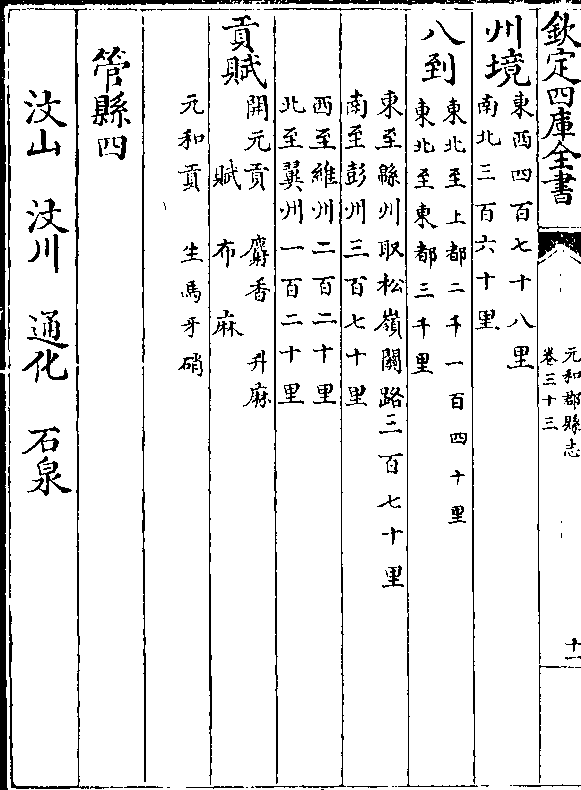 欽定四庫全書
元和郡縣志
卷三十三
十一
州境
東西四百七十八里
南北三百六十里
八到
東北至上都二千一百四十里
東北至東都三千里
東至縣州取松嶺關路三百七十里
南至彭州三百七十里
西至維州二百二十里
北至翼州一百二十里
貢賦
開元貢 麝香 升麻
賦 布 麻
元和貢 生馬牙硝
管縣四
汶山 汶川 通化 石泉